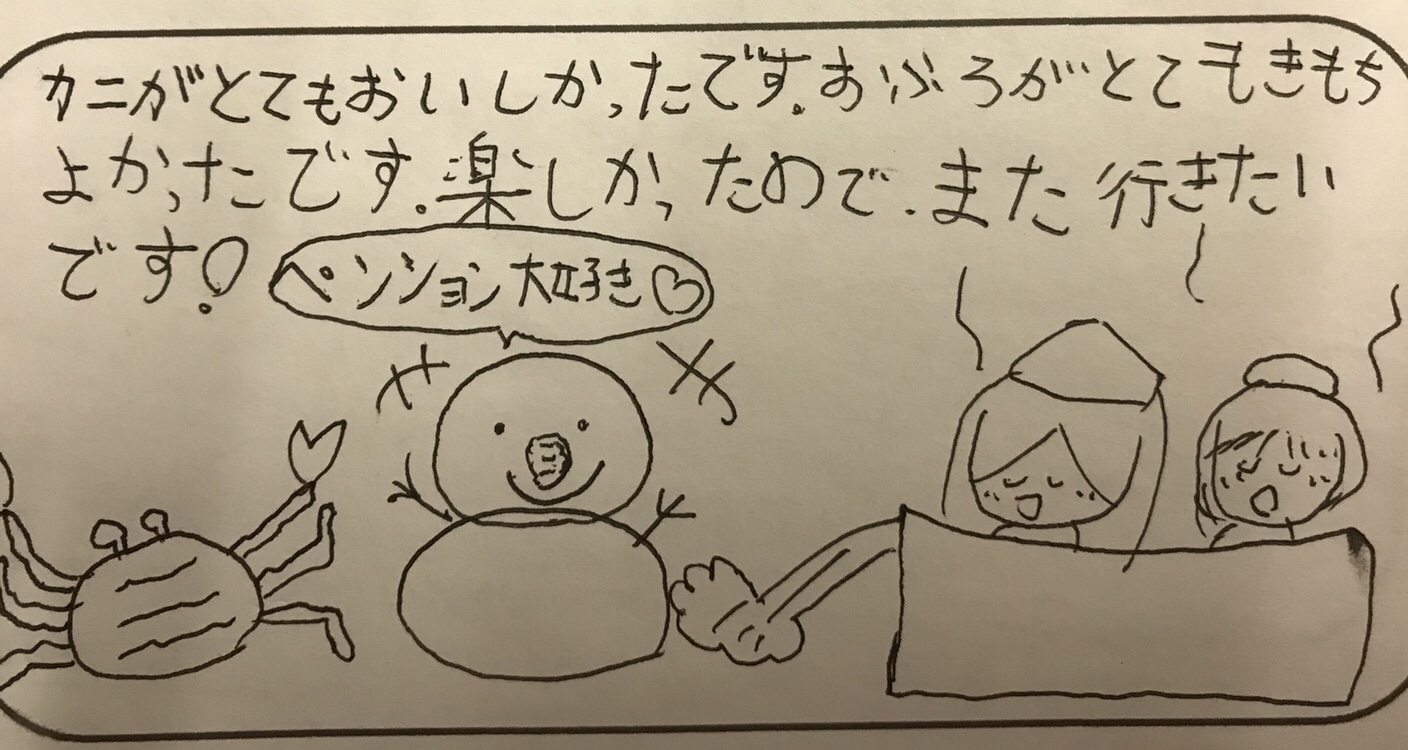 カニがとてもおいしかったです。おふろがとてもきもち
よかったです。楽しかったので、また行きたい
です!
ペンション大好き♡